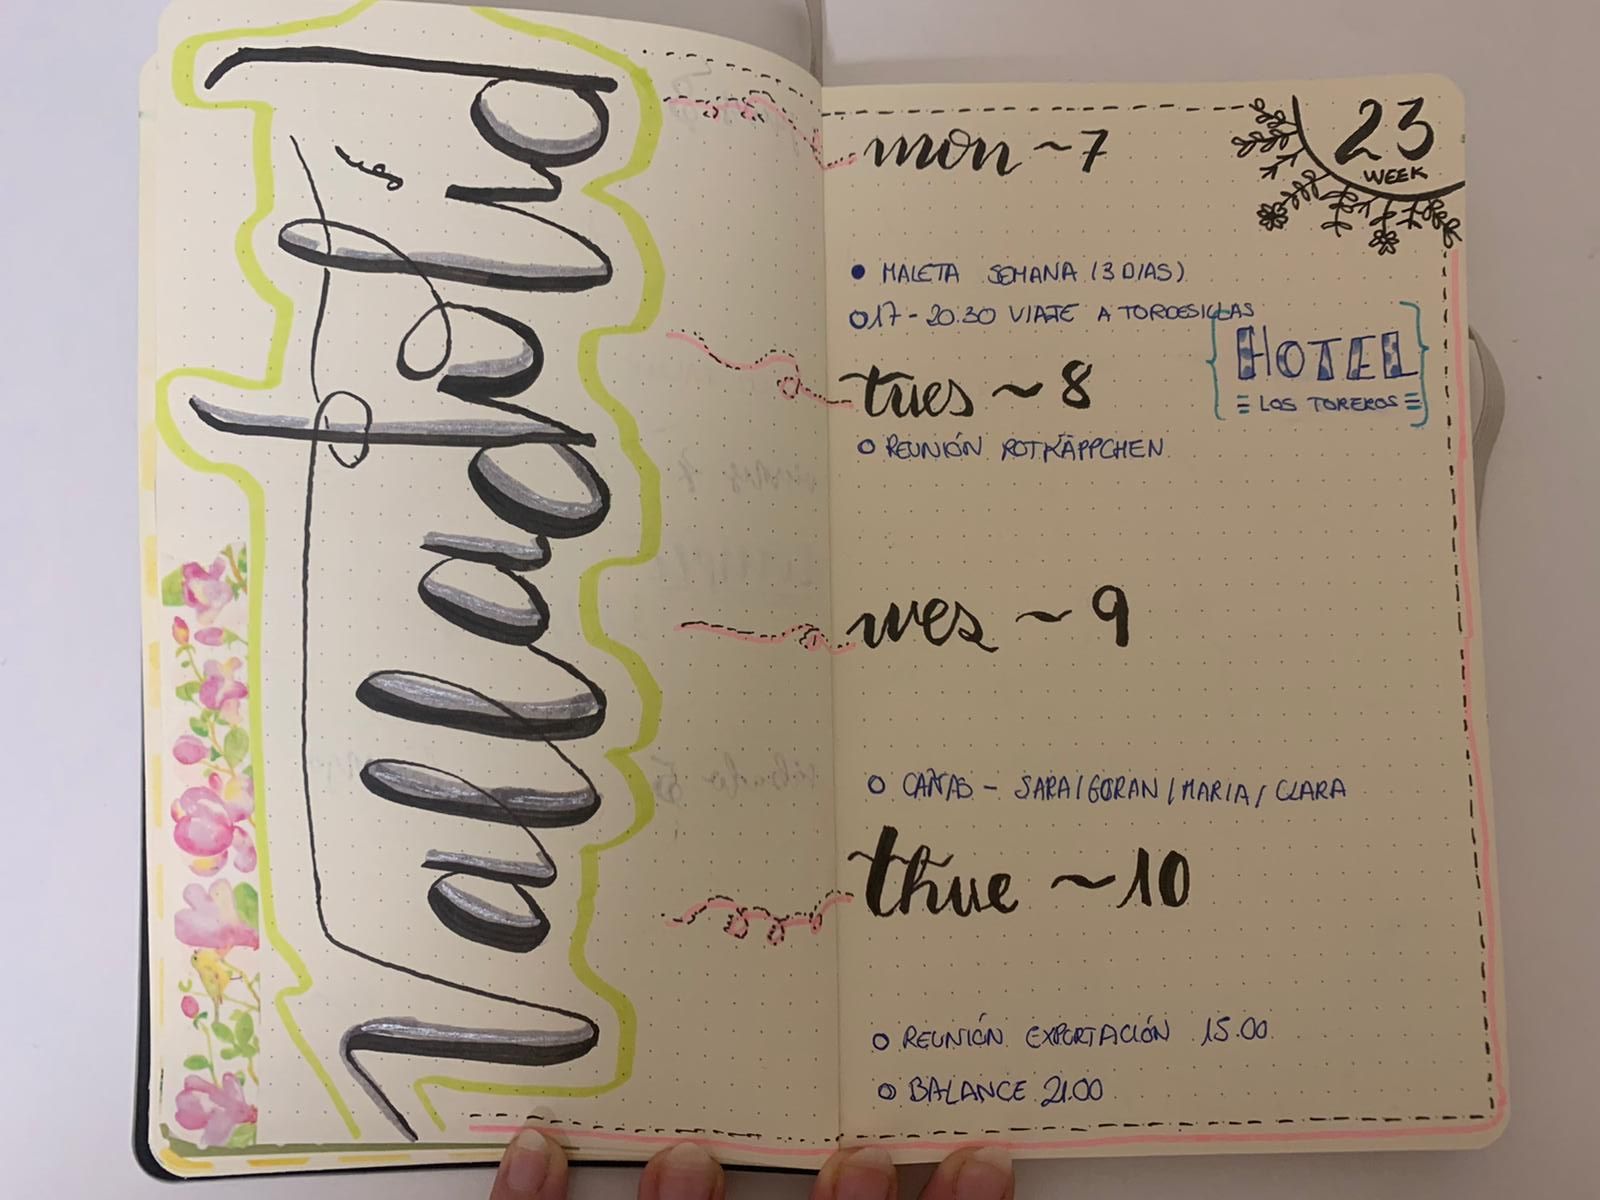 Valladolid
23
WEEK
mon ~ 7
MALETA SEMANA (3 DIAS)
17 - 20:30 VIAJE A TORDESILLAS
HOTEL
LOS TOREROS
tues ~ 8
REUNIÓN ROTKÄPPCHEN
wes ~ 9
CAÑAS - SARA/GORAN/MARIA/CLARA
thue ~ 10
REUNIÓN EXPORTACIÓN 15.00
BALANCE 21.00